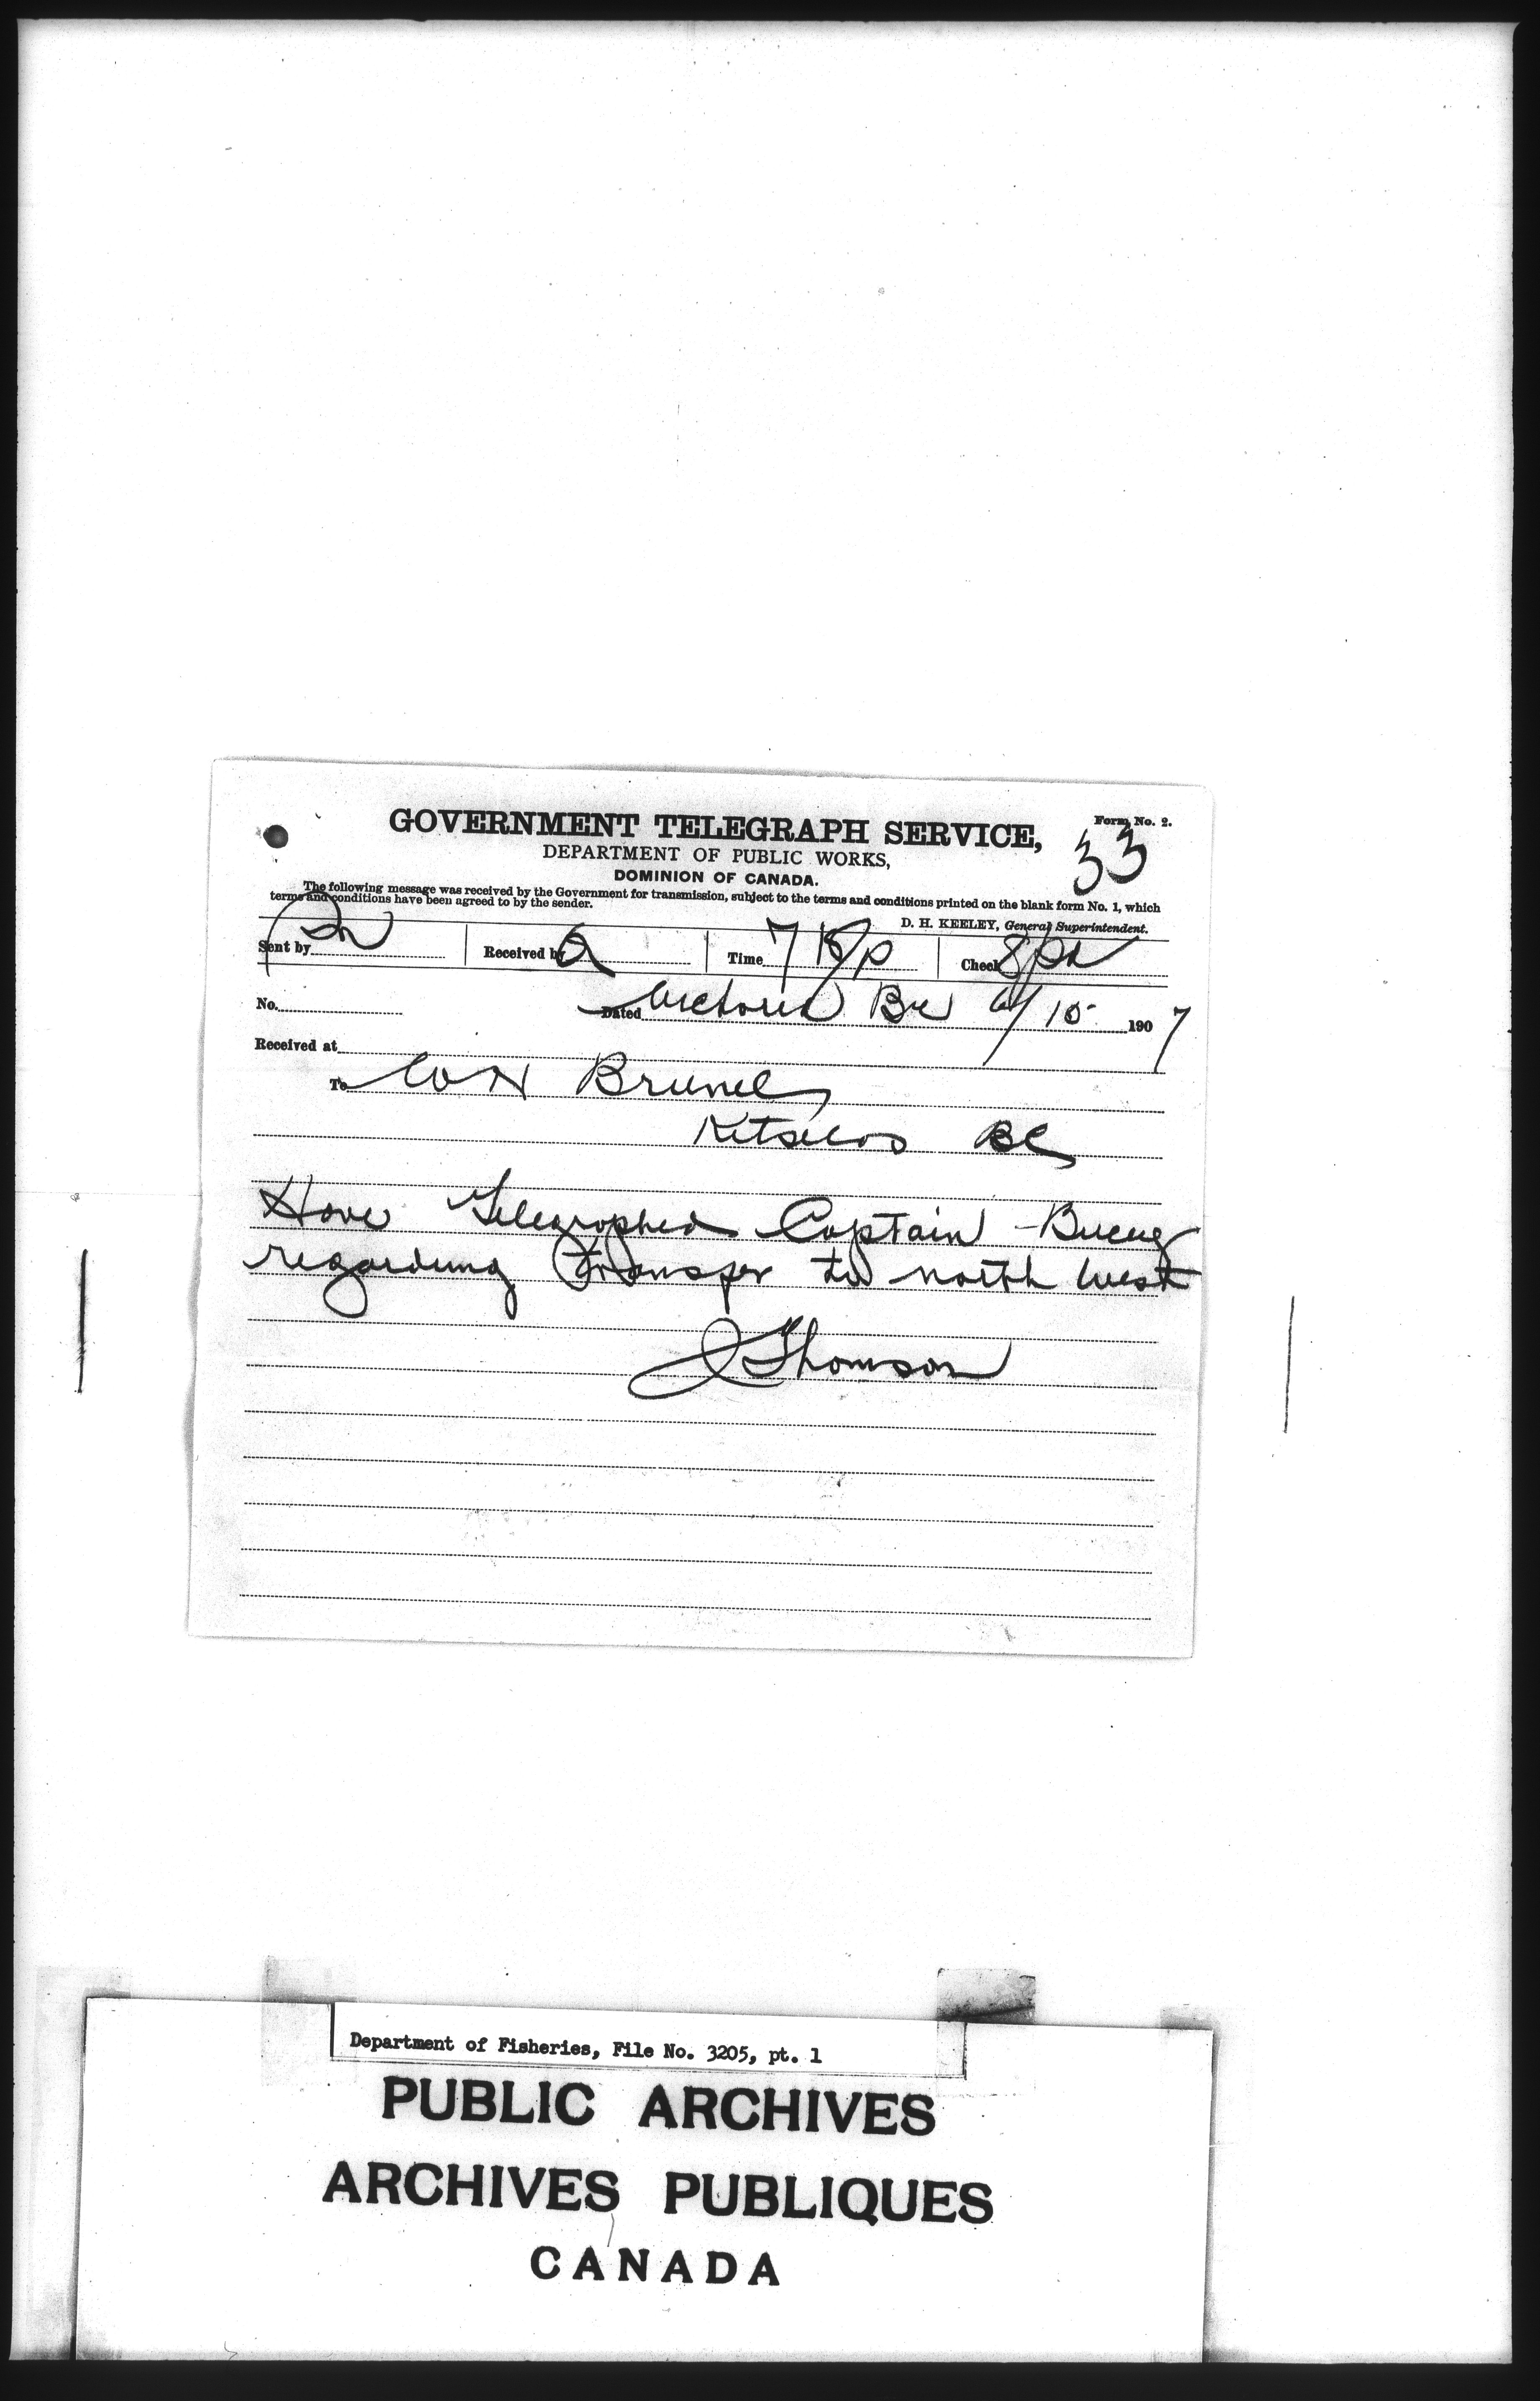 Form No. 2.
GOVERNMENT TELEGRAPH SERVICE,
33
DEPARTMENT OF PUBLIC WORKS,
DOMINION OF CANADA.
The following message was received by the Government for transmission, subject to the terms and conditions printed on the blank form No. 1, which
terms and conditions have been agreed to by the sender.
D. H. KEELEY, General Superintendent.
Sent by Received by Time 7 18p Check 8 pd
No. Dated Victoria BC /10 1907
Received at
To W H Brunel
Kitselas BC
Have Telegraphed Captain
regarding transfer to north west
J Thomson
Department of Fisheries, File No. 3205, pt. 1
PUBLIC ARCHIVES
ARCHIVES PUBLIQUES
CANADA